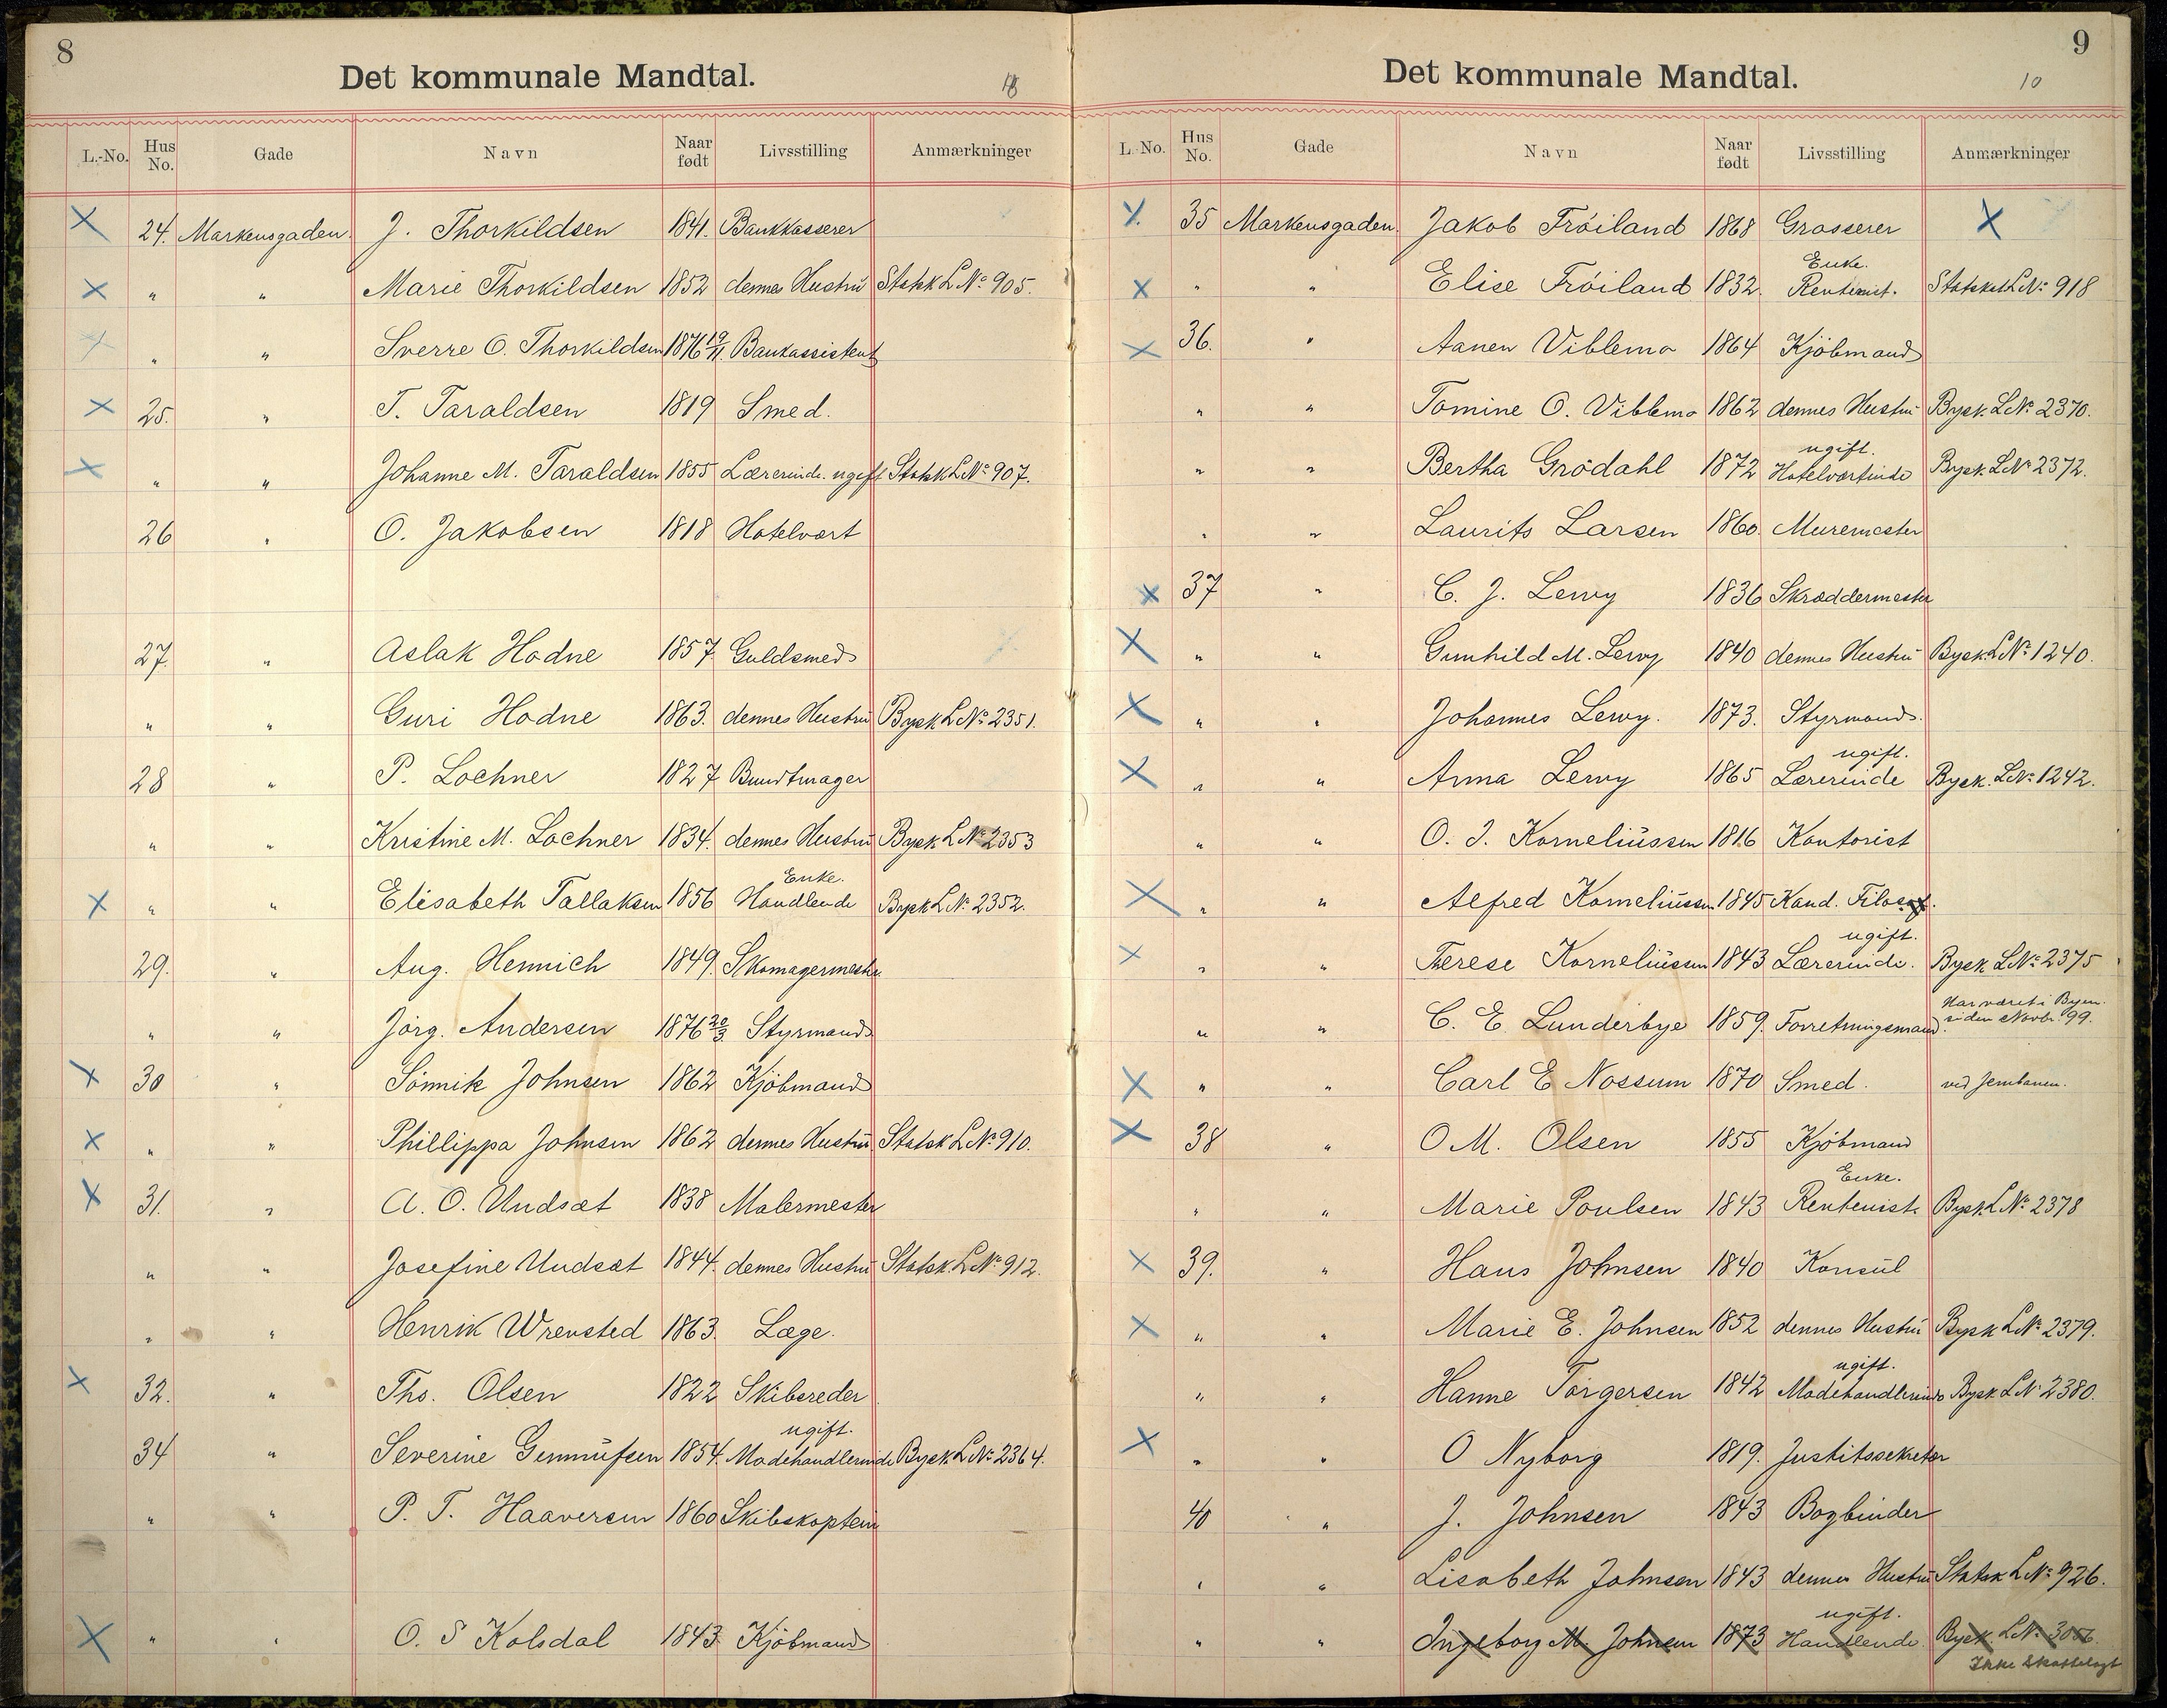 8
Det kommunale Mandtal.
L.-No. Hus No. Gade Navn Naar født Livsstilling Anmærkninger
24. Markensgaden. J. Thorkildsen 1841. Bankkasserer
" " Marie Thorkildsen 1852 dennes Hustru Statsk L№ 905.
" " Sverre O. Thorkildsen 1876 19/11 Bankassistent
25. " T. Taraldsen 1819 Smed.
" " Johanne M. Taraldsen 1855 Lærerinde. ugift Statsk L№ 907.
26 " O. Jakobsen 1818 Hotelvært
27. " Aslak Hodne 1857 Guldsmed
" " Guri Hodne 1863. dennes Hustru Bysk L№ 2351.
28 " P. Lochner 1827 Bundtmager
" " Kristine M. Lochner 1834. dennes Hustru Bysk L№ 2353
Enke.
" " Elisabeth Tallaksen 1856 Handlende Bysk L№ 2352.
29. " Aug. Hennich 1849. Skomagermester
" " Jörg. Andersen 1876 20/3 Styrmand
30 " Sönnik Johnsen 1862 Kjöbmand
" " Phillippa Johnsen 1862 dennes Hustru Statsk L№ 910.
31. " A. O. Undsæt 1838 Malermester
" " Josefine Undsæt 1844. dennes Hustru Statsk. L№ 912.
" " Henrik Wrensted 1863. Læge.
32. " Ths. Olsen 1822 Skibsreder
ugift.
34 " Severine 1854. Modehandlerinde Bysk. L№ 2364.
" " P. T. Haaversen 1860 Skibskaptein
" " O. S Kolsdal 1843 Kjöbmand
9
Det kommunale Mandtal.
10
L. No. Hus No. Gade Navn Naar født Livsstilling Anmærkninger
35 Markensgaden. Jakob Fröiland 1868 Grosserer X
Enke.
" " Elise Fröiland 1832. Rentenist. Statsk L№ 918
36. " Aanen Viblemo 1864 Kjöbmand
" " Tomine O. Viblemo 1862 dennes Hustru Bysk. L№ 2370.
ugift.
" " Bertha Grödahl 1872 Hotelværtinde Bysk. L№ 2372.
" " Laurits Larsen 1860. Muremester
37 " C. J. Lewy 1836 Skræddermester
" " Gunhild M. Lewy 1840 dennes Hustru Bysk. L№ 1240.
" " Johannes Lewy. 1873. Styrmand.
ugift.
" " Anna Lewy 1865 Lærerinde Bysk. L№ 1242.
" " O. J. Korneliussen 1816 Kontorist
" " Alfred Korneliussen 1845 Kand. Filosof.
ugift.
" " Therese Korneliussen 1843 Lærerinde. Bysk L№ 2375
Har været i Byen
" " C. E. Lunderbye 1859. Forretningsmand. siden Novbr. 99.
" " Carl E Nossum 1870 Smed. ved Jernbanen.
38 " O M. Olsen 1855 Kjöbmand
Enke.
" " Marie Poulsen 1843 Rentenist. Bysk. L№ 2378
39. " Hans Johnsen 1840 Konsul
" " Marie E. Johnsen 1852 dennes Hustru Bysk L№ 2379.
ugift.
" " Hanne Torgersen 1842 Modehandlerinde Bysk. L№ 2380.
" " O Nyborg 1819. Justitssekretær
40 " J. Johnsen 1843 Bogbinder
" " Lisabeth Johnsen 1843 dennes Hustru Statsk L№ 926.
ugift.
" " Ingeborg M. Johnsen 1873 Handlende. Bysk. L№ 3056.
Ikke Skattelagt